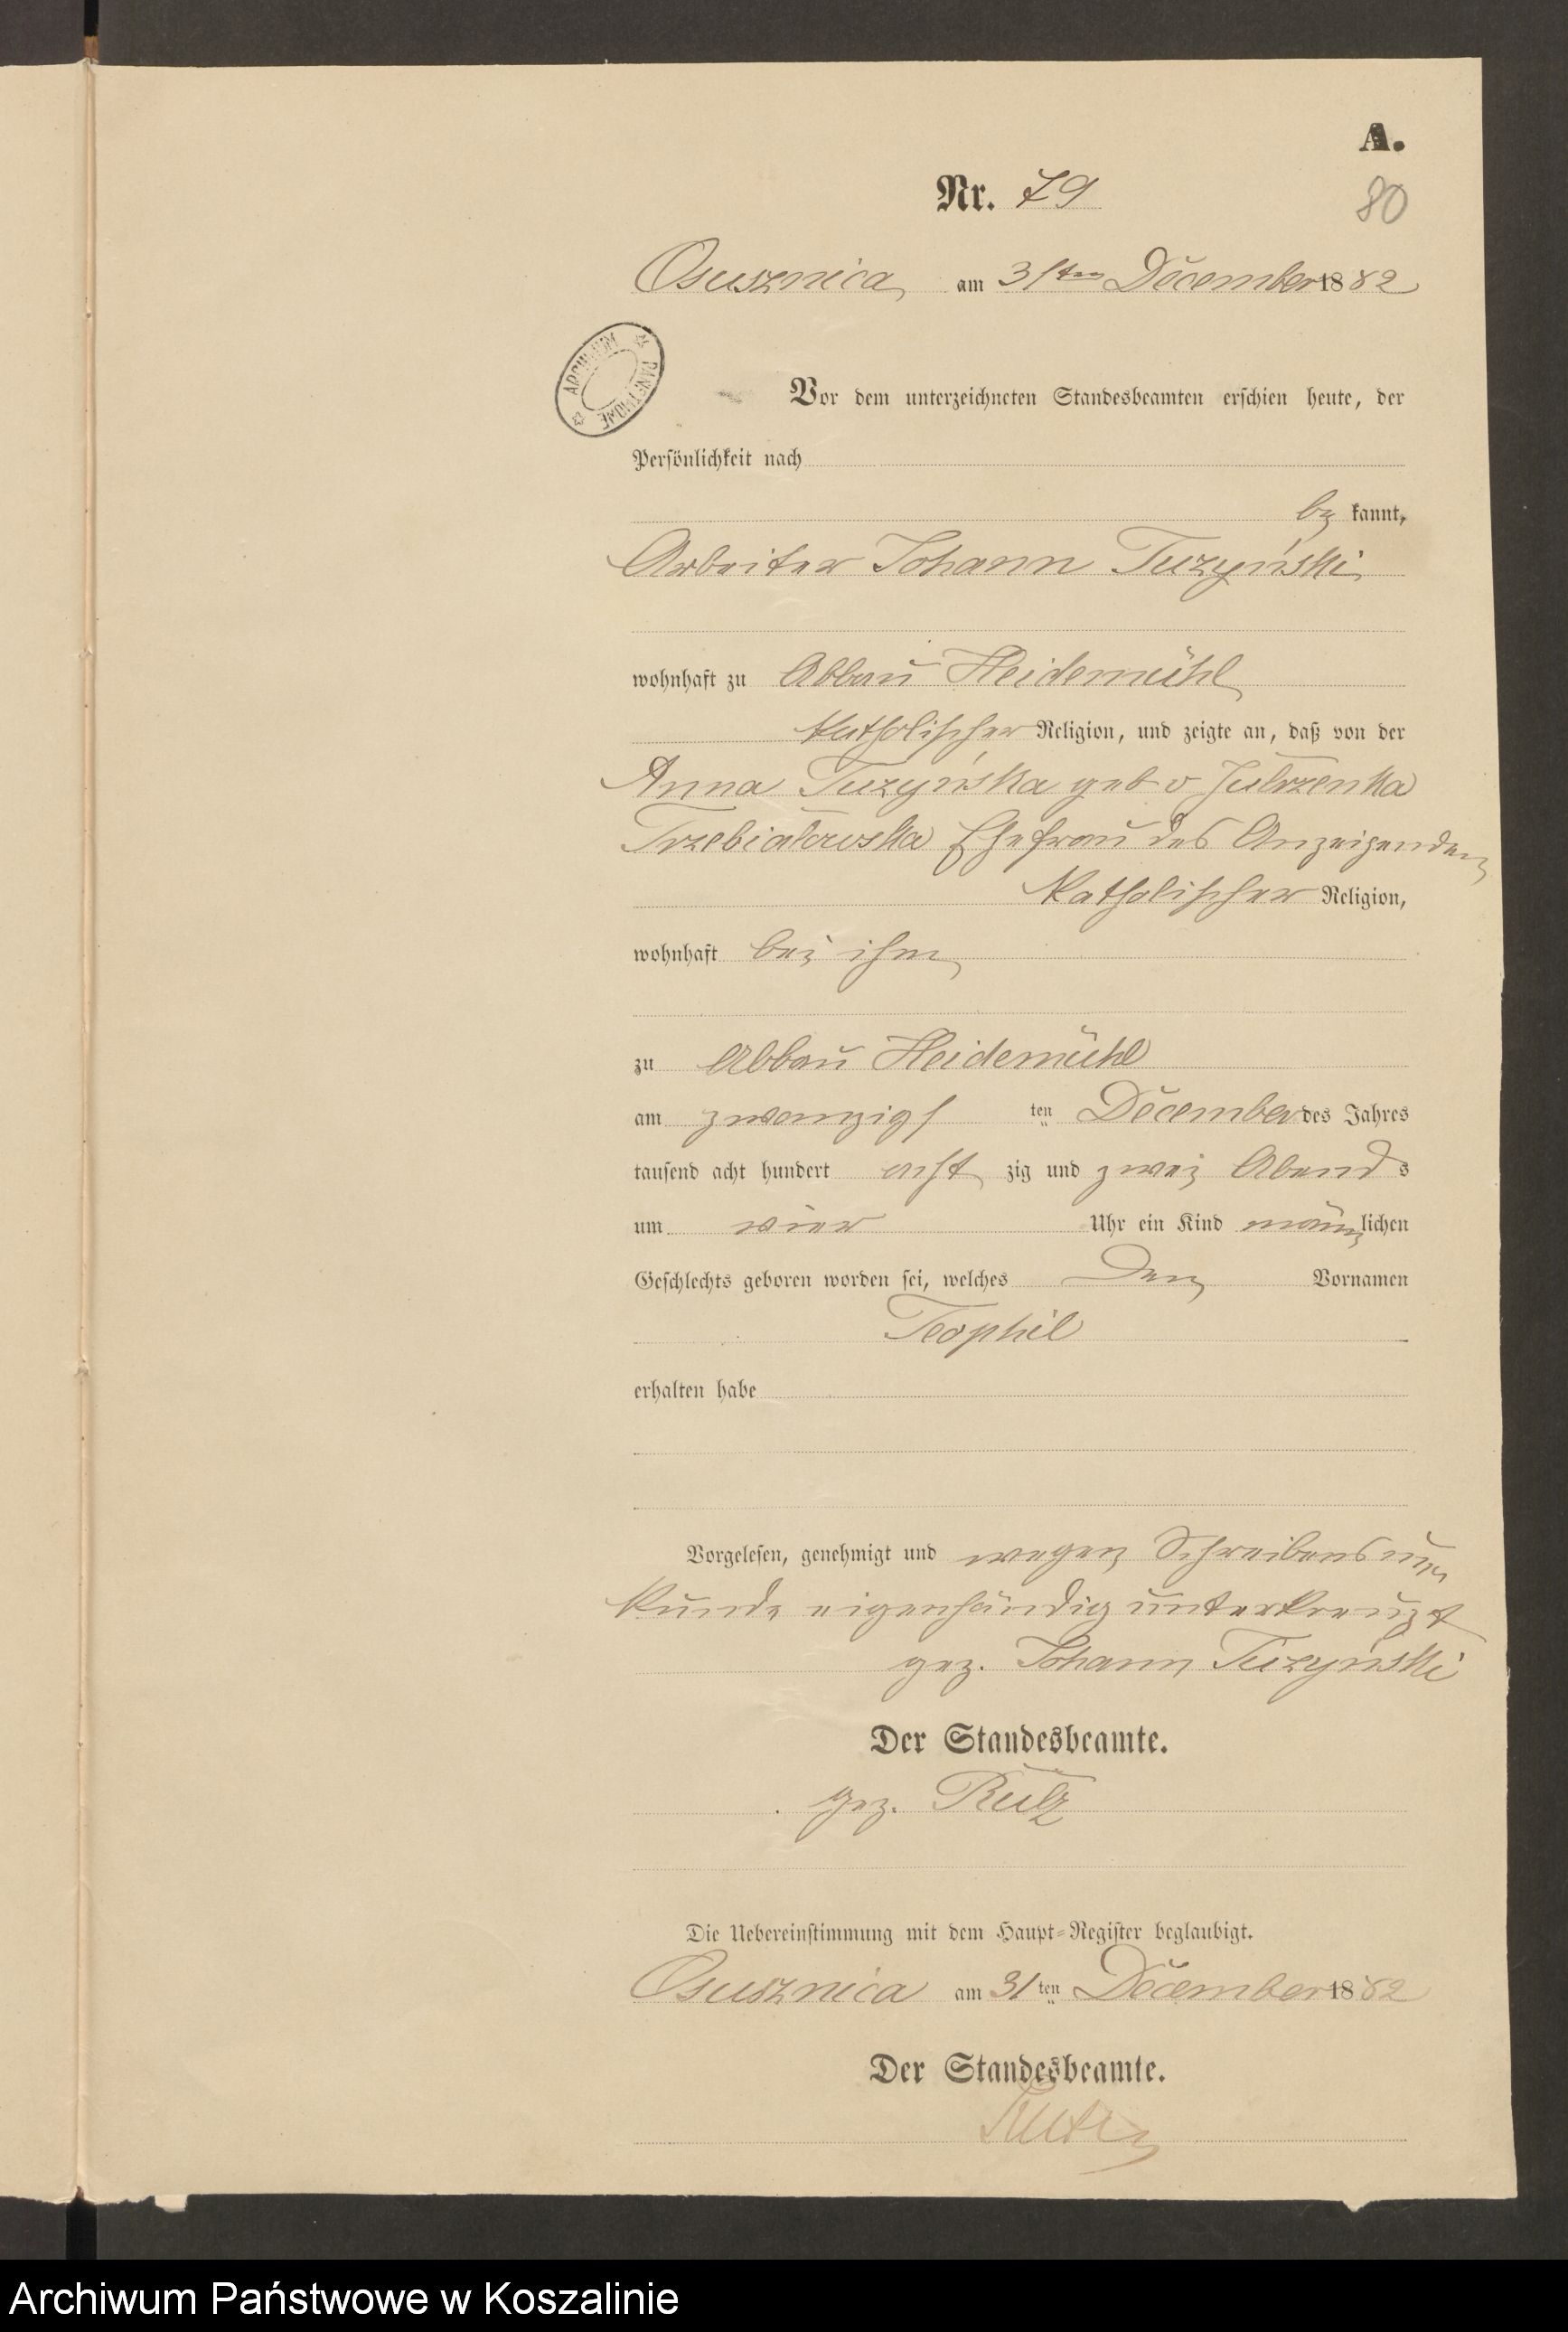 A.
Nr. 79
80
Osusznica am 31ten December 1882
ARCHIWUM PAŃSTWOWE
Vor dem unterzeichneten Standesbeamten erschien heute, der
Persönlichkeit nach
be kannt,
Arbeiter Johann Tuzyński
wohnhaft zu Abbau Heidemühl
katholischer Religion, und zeigte an, daß von der
Anna Tuzyńska geb v Jutrzenka
Trzebiatowska Ehefrau des Anzeigenden
katholischer Religion,
wohnhaft bei ihm
zu Abbau Heidemühl
am zwanzigs ten December des Jahres
tausend acht hundert acht zig und zwei Abends
um vier Uhr ein Kind männlichen
Geschlechts geboren worden sei, welches den Vornamen
Teophil
erhalten habe
Vorgelesen, genehmigt und wegen Schreibensun
kunde eigenhändig unterkreuzt
gez. Johann Tuzyński
Der Standesbeamte.
gez.
Die Uebereinstimmung mit dem Haupt-Register beglaubigt.
Osusznica am 31ten December 1882
Der Standesbeamte.
Archiwum Państwowe w Koszalinie